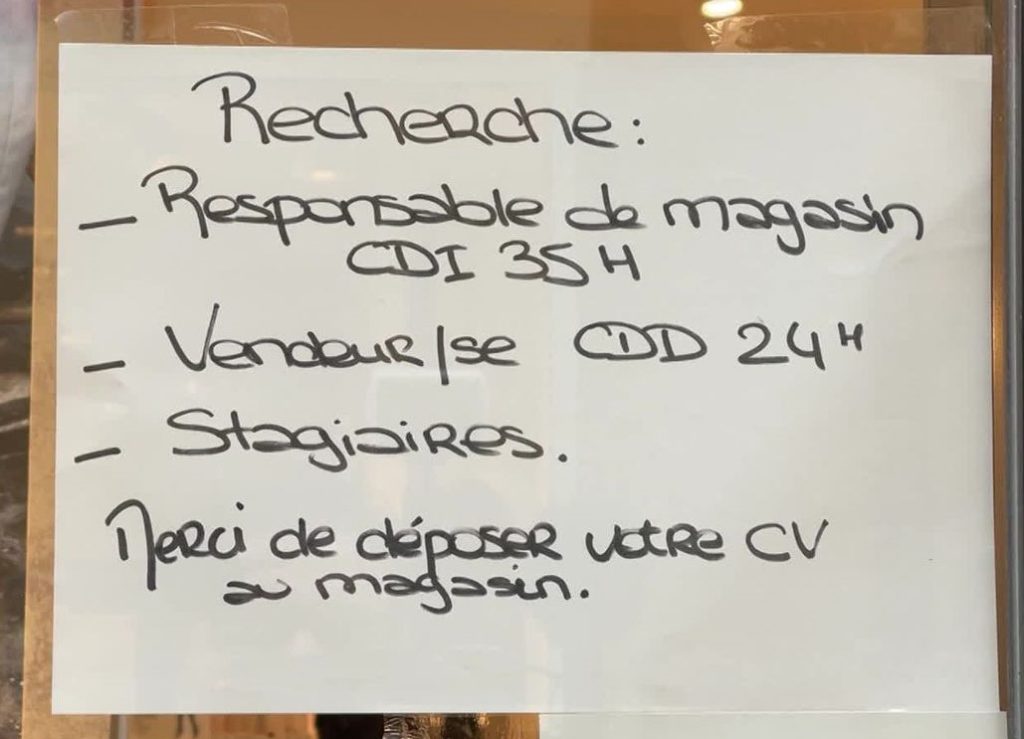 Recherche :
- Responsable de magasin
CDI 35H
- Vendeur/se CDD 24H
- Stagiaires.
Merci de déposer votre CV
au magasin.